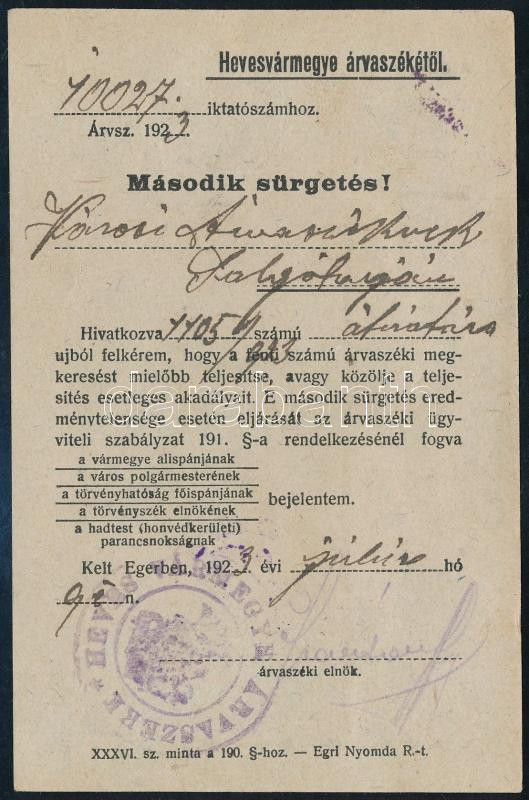 Hevesvármegye árvaszékétől.
10027. iktatószámhoz.
Árvsz. 1923.
Második sürgetés!
Városi Árvaszéknek
Salgótarján
Hivatkozva 1105 /923 számú átiratára
ujból felkérem, hogy a fenti számú árvaszéki meg-
keresést mielőbb teljesítse, avagy közölje a telje-
sítés esetleges akadályait. E második sürgetés ered-
ménytelensége esetén eljárását az árvaszéki ügy-
viteli szabályzat 191. §-a rendelkezésénél fogva
a vármegye alispánjának
a város polgármesterének
a törvényhatóság főispánjának
a törvényszék elnökének
a hadtest (honvédkerületi)
parancsnokságnak
bejelentem.
Kelt Egerben, 1923. évi július hó
9én.
árvaszéki elnök.
HEVES VÁRMEGYE ÁRVASZÉKE
XXXVI. sz. minta a 190. §-hoz. — Egri Nyomda R.-t.
darabanth